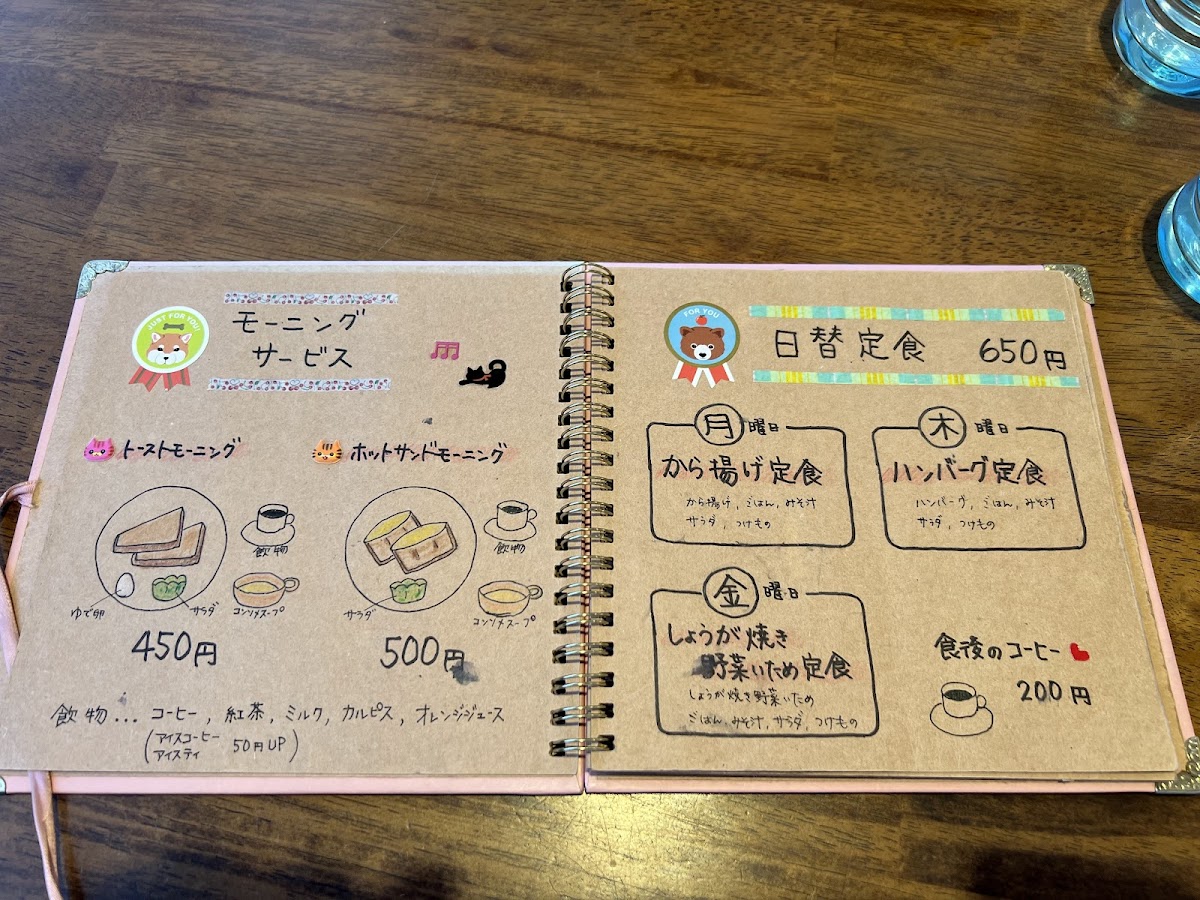 JUST FOR YOU!
モーニング
サービス
トーストモーニング
飲物
ゆで卵
サラダ
コンソメスープ
450円
ホットサンドモーニング
飲物
サラダ
コンソメスープ
500円
飲物... コーヒー, 紅茶, ミルク, カルピス, オレンジジュース
(アイスコーヒー
アイスティ 50円UP)
FOR YOU
日替定食 650円
月曜日
から揚げ定食
から揚げ, ごはん, みそ汁
サラダ, つけもの
木曜日
ハンバーグ定食
ハンバーグ, ごはん, みそ汁
サラダ, つけもの
金曜日
しょうが焼き
野菜いため定食
しょうが焼き野菜いため
ごはん, みそ汁, サラダ, つけもの
食後のコーヒー
200円